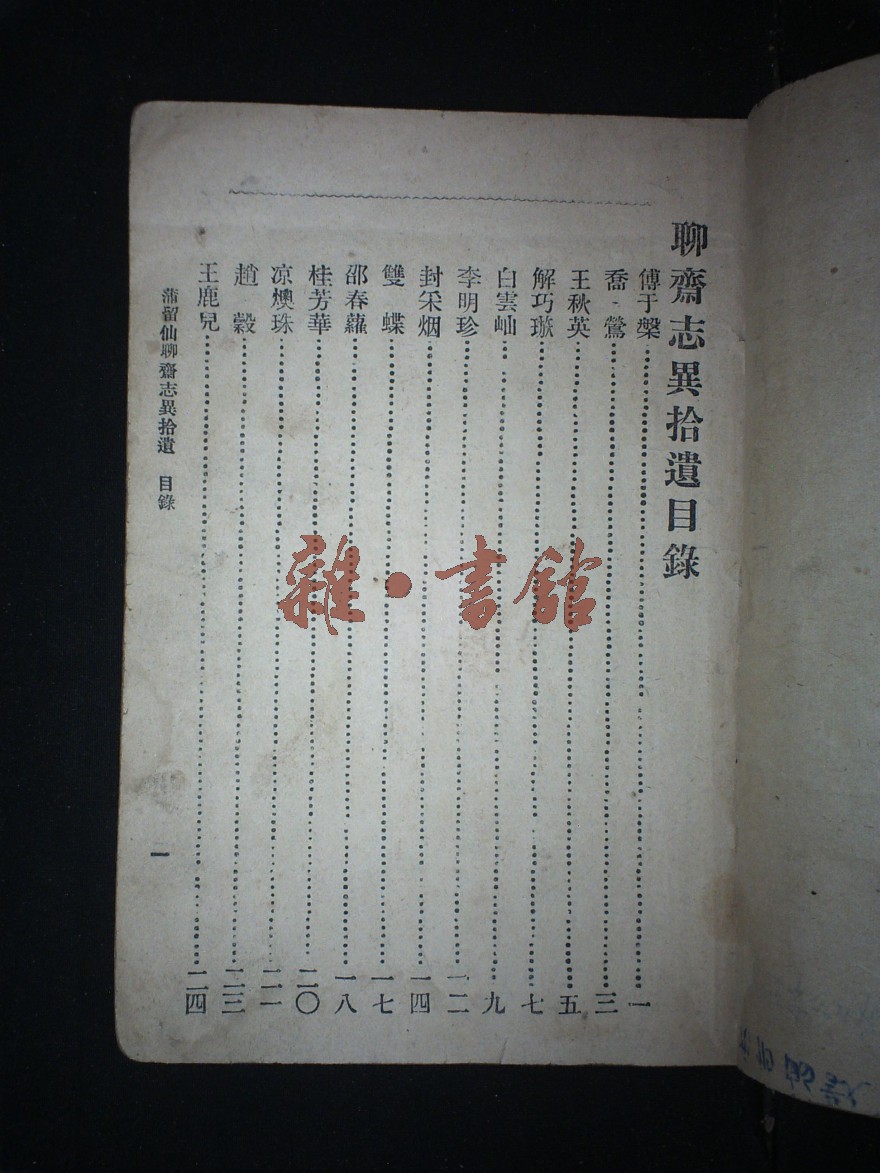 聊齋志異拾遺目錄
傅于槃……一
喬鶯……三
王秋英……五
解巧璇……七
白雲岫……九
李明珍……一二
封采烟……一四
雙蝶……一七
邵春蘿……一八
桂芳華……二〇
凉燠珠……二一
趙穀……二三
王鹿兒……二四
蒲留仙聊齋志異拾遺 目錄
一
雜·書館